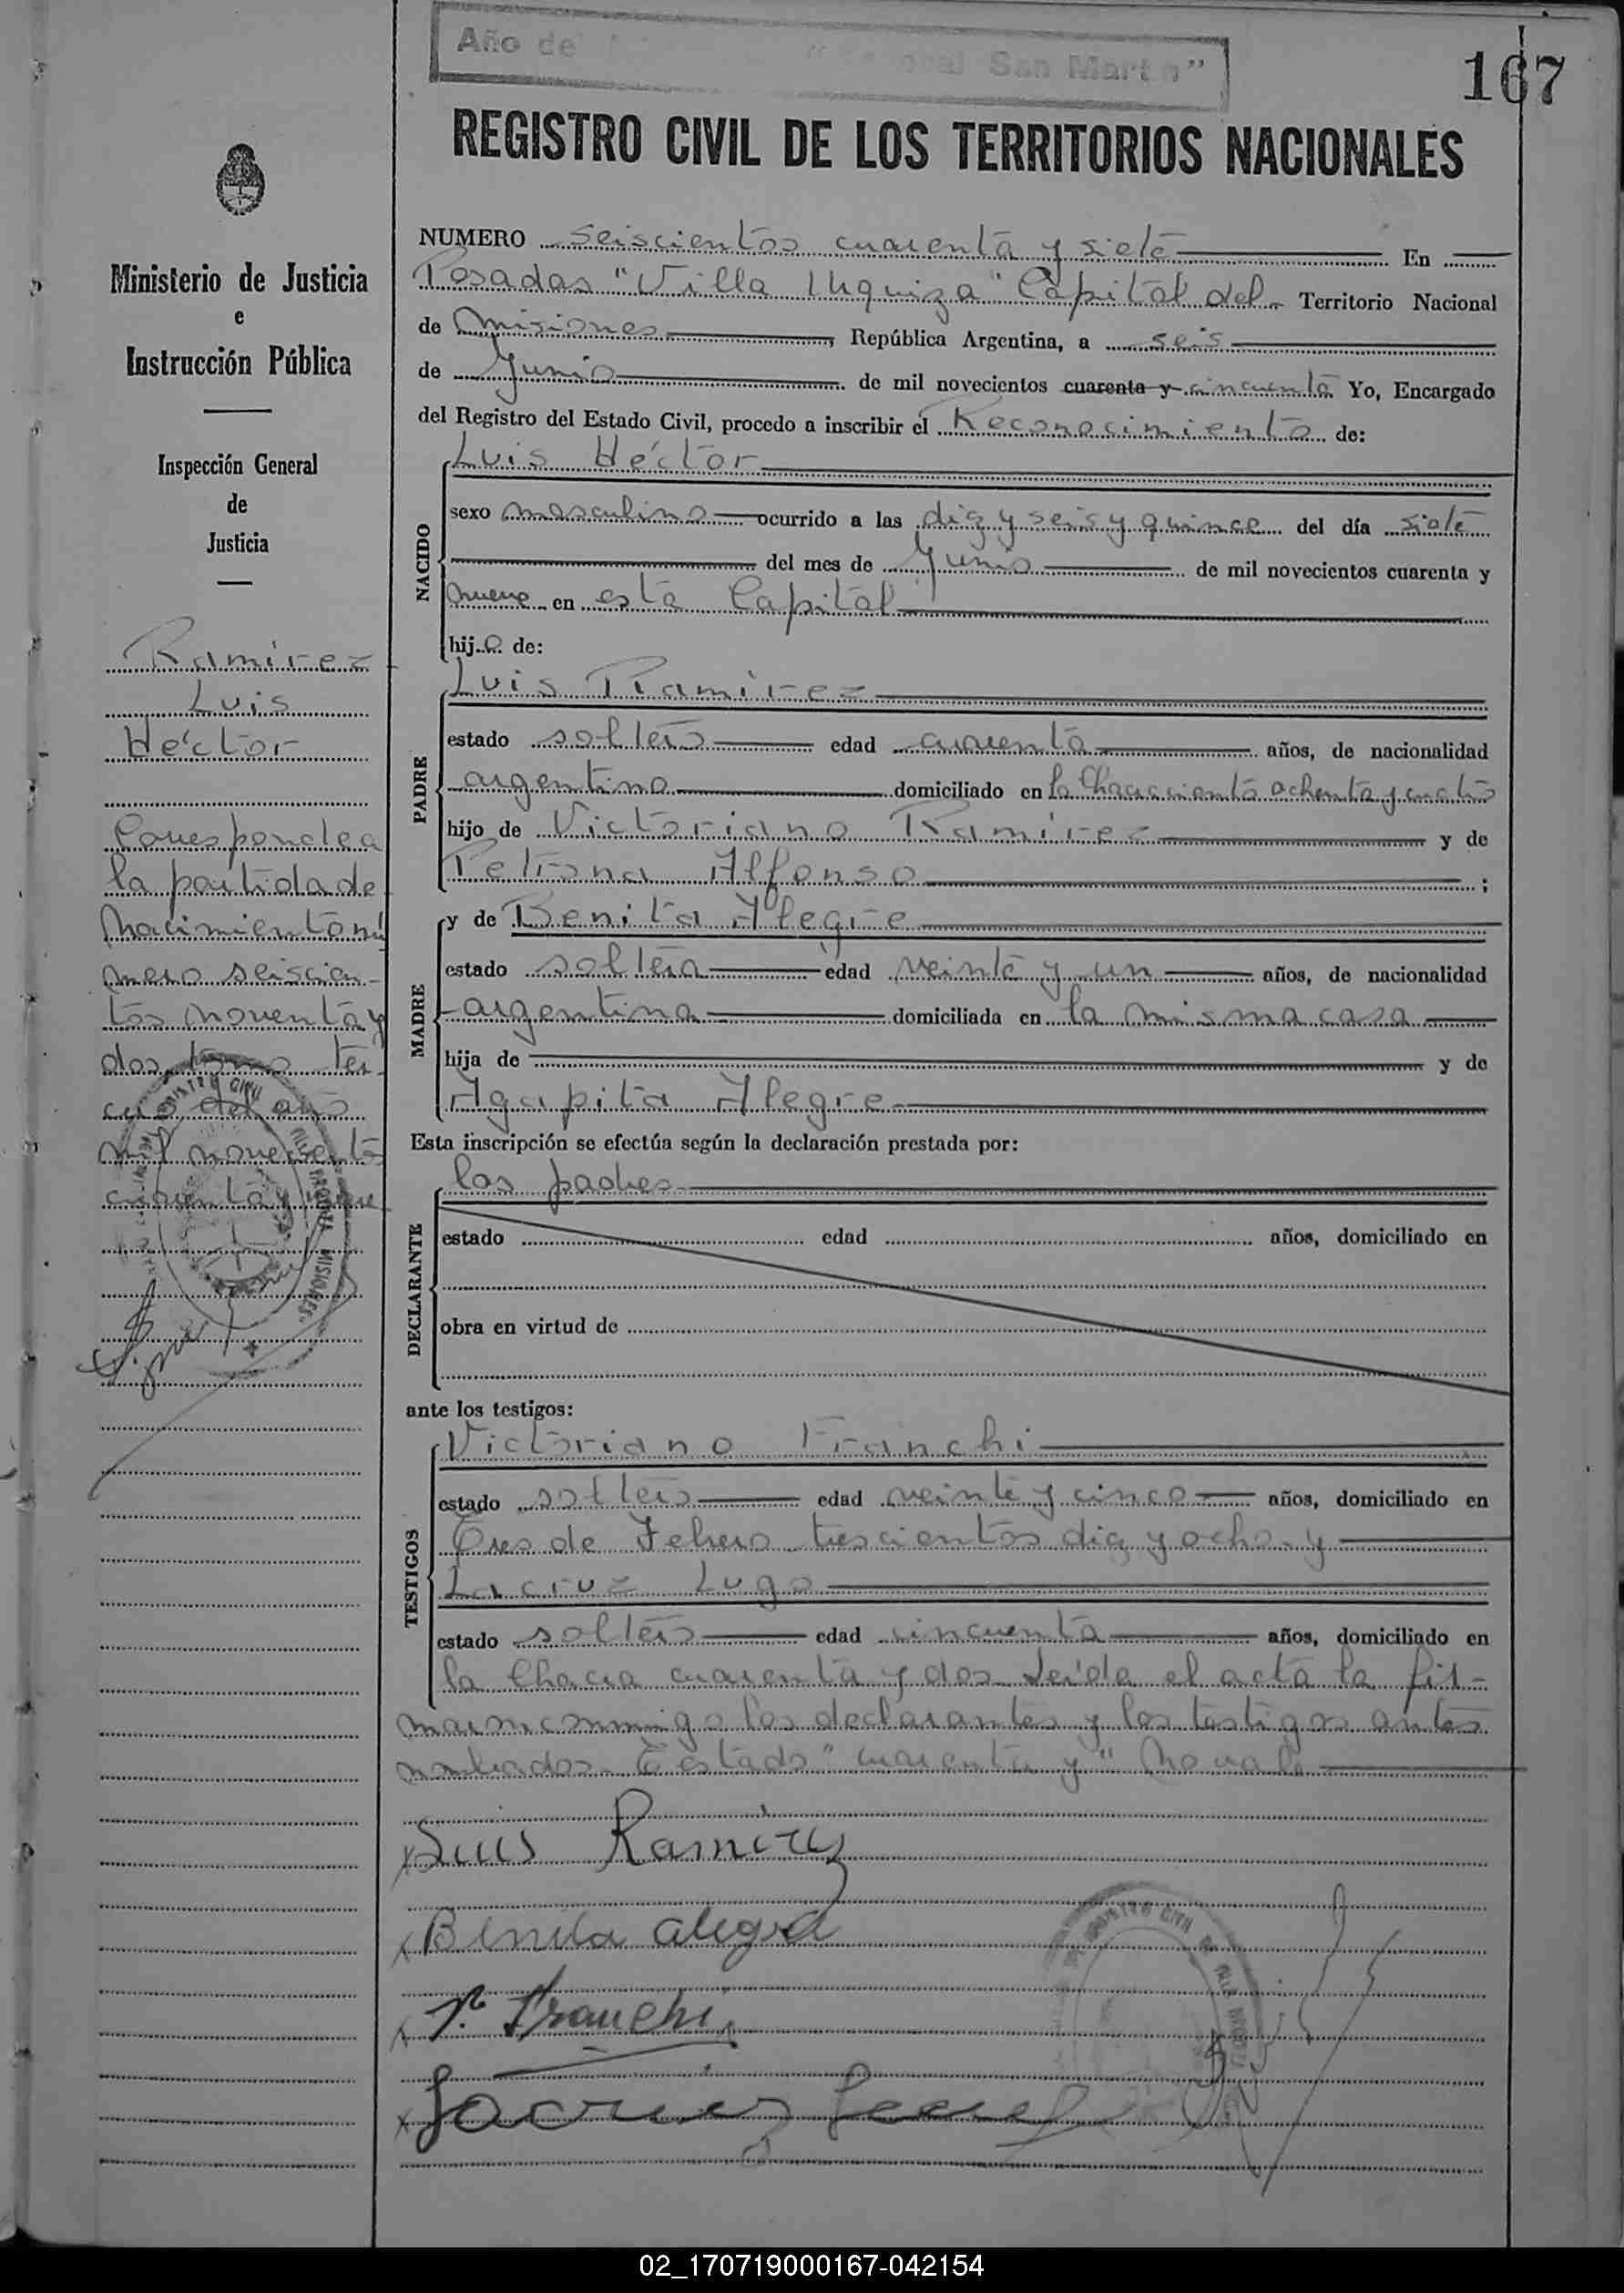 Año de " San Martin"
167
REGISTRO CIVIL DE LOS TERRITORIOS NACIONALES
Ministerio de Justicia
e
Instrucción Pública
Inspección General
de
Justicia
Ramírez
Luis
Héctor
Corresponde a
la partida de
nacimiento nú
mero seiscien-
tos noventa y
dos tomo ter-
cero del año
mil novecientos
cuarenta y nueve
NUMERO seiscientos cuarenta y siete En
Posadas "Villa Urquiza" Capital del Territorio Nacional
de Misiones, República Argentina, a seis
de Junio de mil novecientos cuarenta y cincuenta Yo, Encargado
del Registro del Estado Civil, procedo a inscribir el Reconocimiento de:
NACIDO
Luis Héctor
sexo masculino ocurrido a las diez y seis y quince del día siete
del mes de Junio de mil novecientos cuarenta y
nueve en esta Capital
hijo de:
PADRE
Luis Ramírez
estado soltero edad cuarenta años, de nacionalidad
argentino domiciliado en la Chacra ciento ochenta y cuatro
hijo de Victoriano Ramírez y de
Petrona Alfonso ;
MADRE
y de Benita Alegre
estado soltera edad veinte y un años, de nacionalidad
argentina domiciliada en la misma casa
hija de y de
Agapita Alegre
Esta inscripción se efectúa según la declaración prestada por:
DECLARANTE
los padres
estado edad años, domiciliado en
obra en virtud de
ante los testigos:
TESTIGOS
Victoriano Franchi
estado soltero edad veinte y cinco años, domiciliado en
Tres de Febrero trescientos diez y ocho y
Lacruz Lugo
estado soltero edad cincuenta años, domiciliado en
la Chacra cuarenta y dos. Leída el acta la fir-
man conmigo los declarantes y los testigos antes
nombrados. Testado "cuarenta y" No vale
x Luis Ramirez
x Benita Alegre
x V. Franchi
x Lacruz
02_170719000167-042154